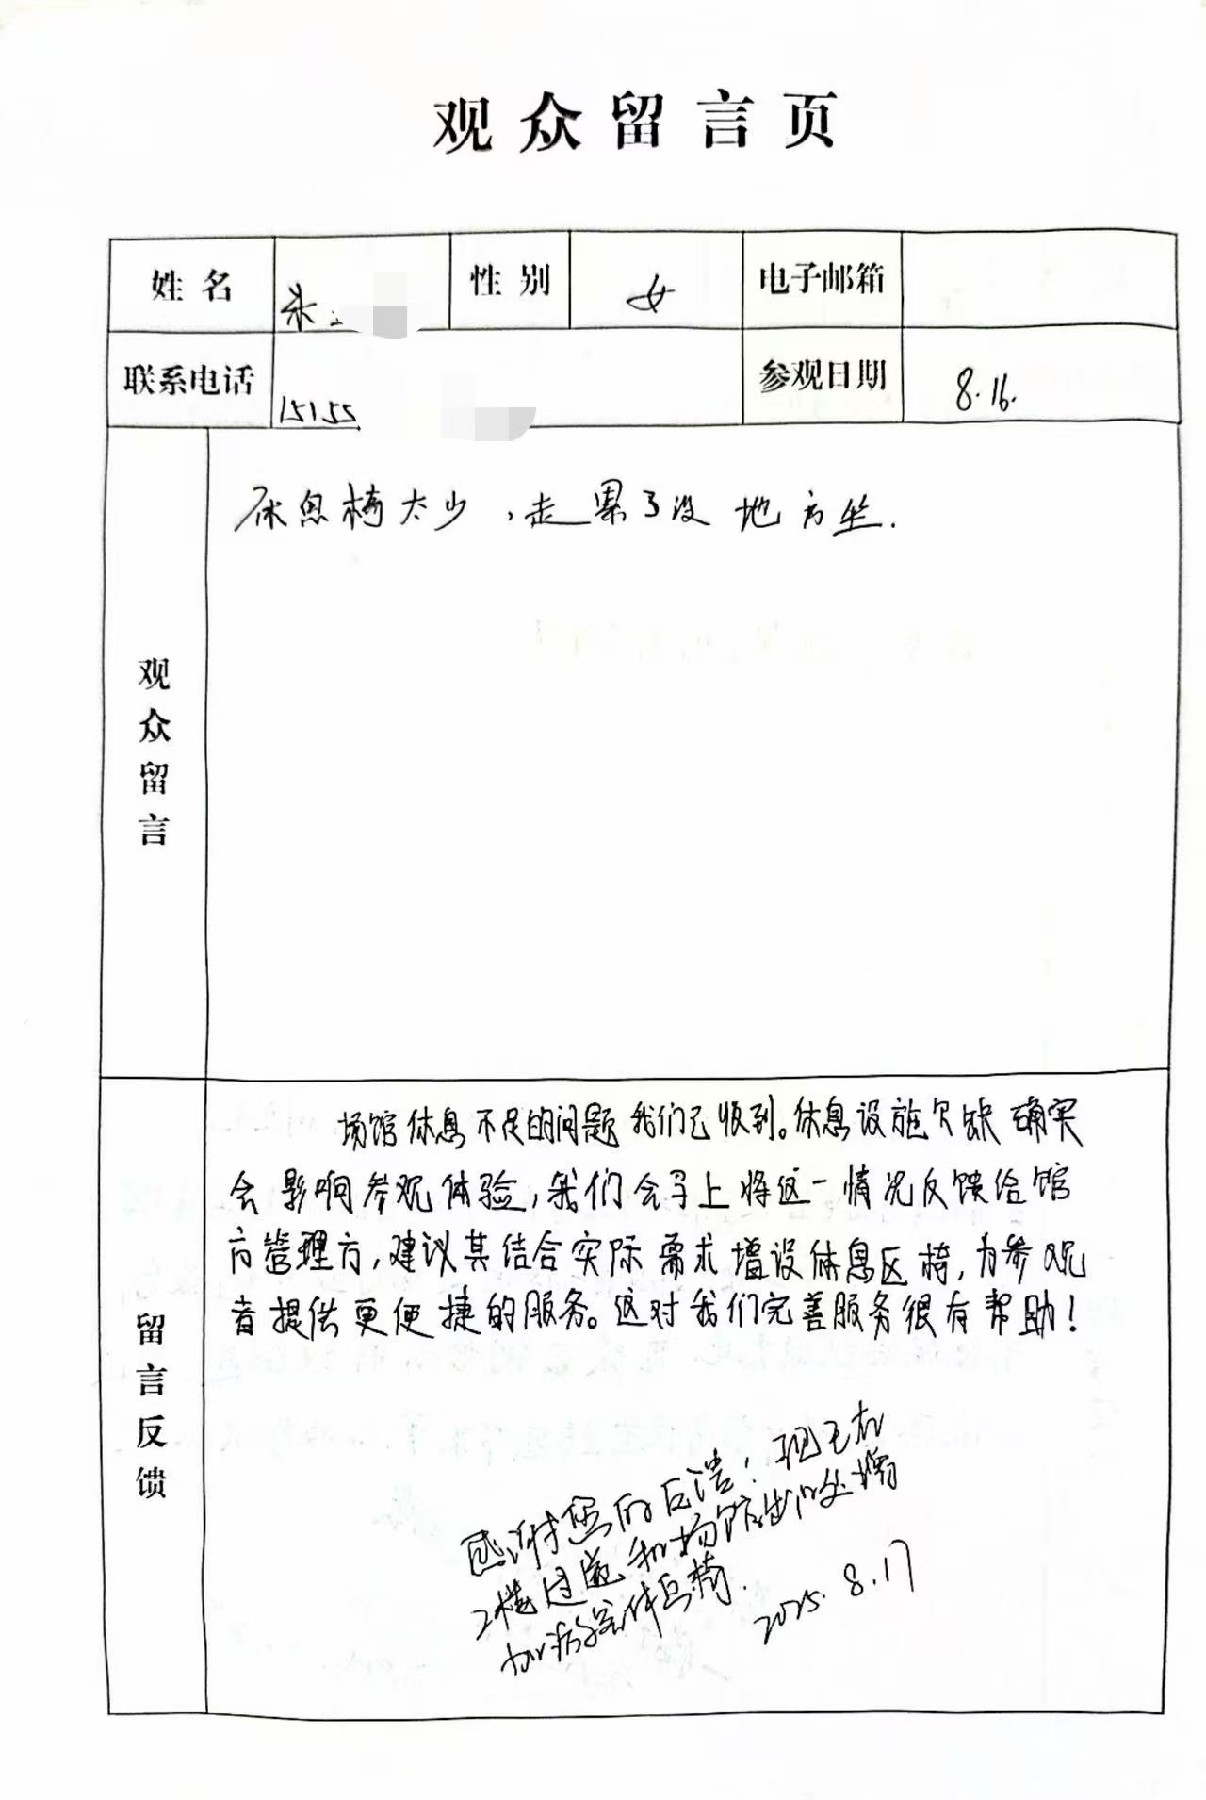 观众留言页
姓名 朱 性别 女 电子邮箱
联系电话 15155 参观日期 8.16.
观众留言
休息椅太少，走累了没地方坐.
留言反馈
场馆休息不足的问题我们已收到。休息设施欠缺确实
会影响参观体验，我们会马上将这一情况反馈给馆
方管理方，建议其结合实际需求增设休息区椅，为参观
者提供更便捷的服务。这对我们完善服务很有帮助！
感谢您的反馈！现已在
2楼过道和场馆出口处增
加 休息椅.
2025.8.17